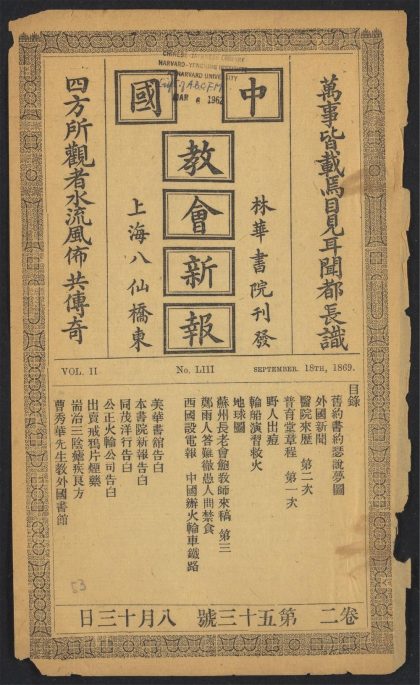 CHINESE-JAPANESE LIBRARY
HARVARD-YENCHING INSTITUTE
HARVARD UNIVERSITY
MAR 6 1962
中國
教會新報
萬事皆載焉目見耳聞都長識
林華書院刊發
上海八仙橋東
四方所觀者水流風佈共傳奇
VOL. II No. LIII SEPTEMBER. 18TH, 1869.
目錄
舊約書約瑟說夢圖
外國新聞
醫院來歷 第二次
普育堂章程 第一次
野人出痘
輪船演習救火
地球圖
蘇州長老會鮑教師來稿 第三
鄭雨人答難徹愚人問禁食
西國設電報 中國辦火輪車鐵路
美華書館告白
本書院新報告白
同茂洋行告白
公正火輪公司告白
出賣戒鴉片煙藥
耑治三陰瘧疾良方
曹秀華先生教外國書館
53
卷二 第五十三號 八月十三日